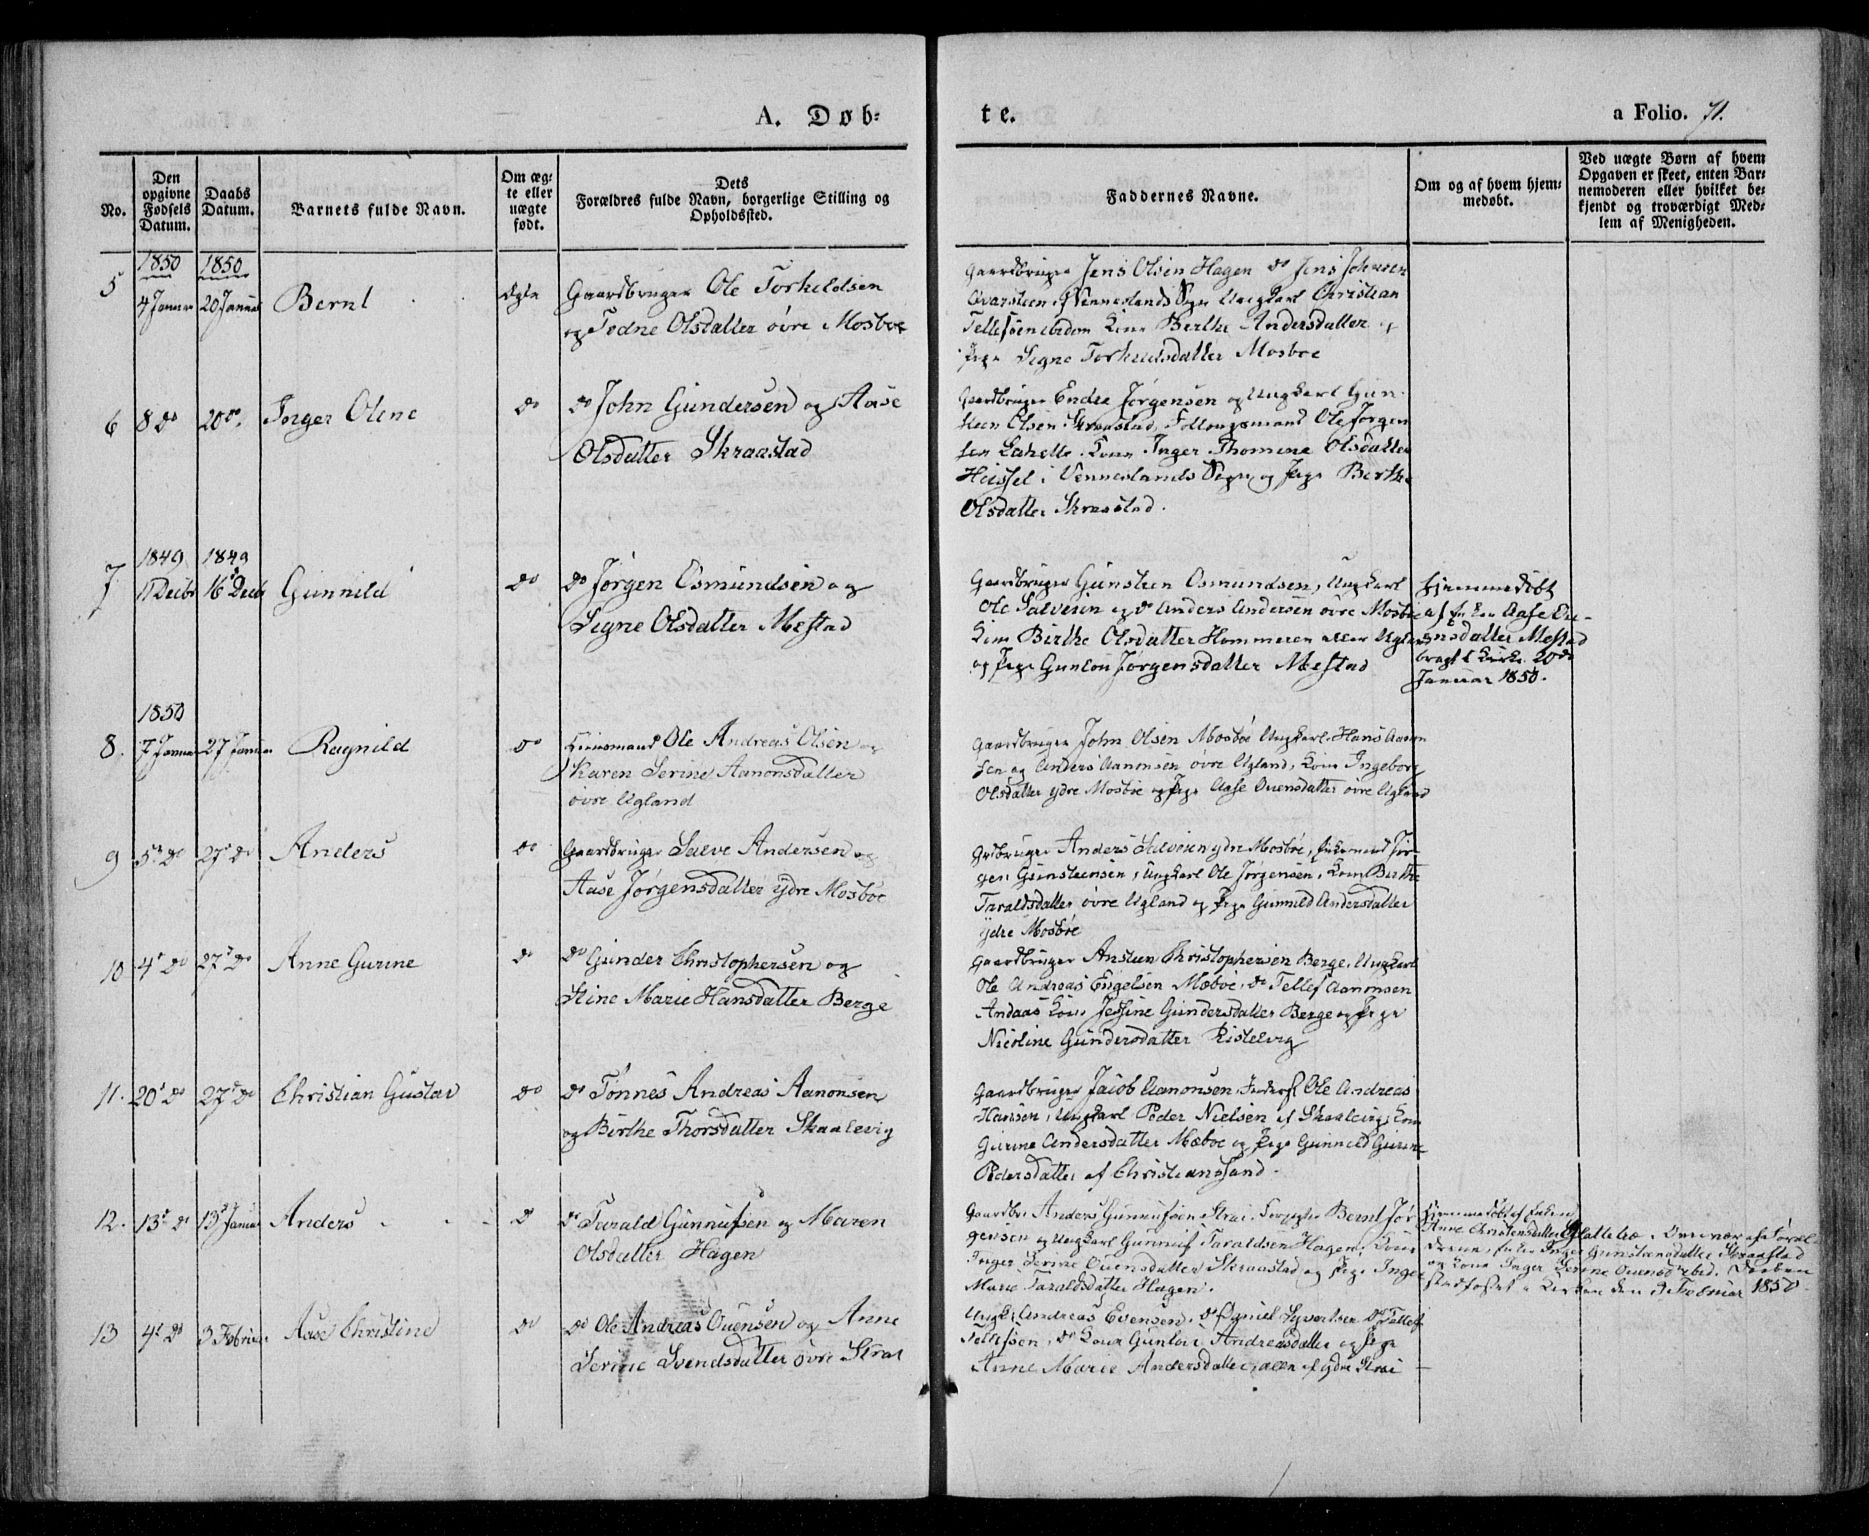 A. Døb-
te.
a Folio. 71.
No.
Den opgivne Fødsels Datum.
Daabs Datum.
Barnets fulde Navn.
Om æg-
te eller
uægte
født.
Dets
Forældres fulde Navn, borgerlige Stilling og
Opholdssted.
Faddernes Navne.
Om og af hvem hjem-
medøbt.
Ved uægte Børn af hvem
Opgaven er skeet, enten Bar-
nemoderen eller hvilket be-
kjendt og troværdigt Med-
lem af Menigheden.
1850 1850
5 4 Januar 20 Januar Bernt Ægte
Gaardbruger Ole Torkeldsen
og Todne Olsdatter øvre Mosbøe
Gaardbruger Jens Olsen Hagen do Jens Johnsen
Qvarsteen Venneslands Sogn Ungkarl Christian
Tellefsen Kone Berthe Andersdatter
Pige Signe Torkeldsdatter Mosbøe
6 8 do 20 do Inger Olene do
do John Gundersen og Aase
Olsdatter Skraastad
Gaardbruger Endre Jørgensen og Ungkarl Gun-
steen Olsen Skraastad, Ole Jørgen-
sen Kone Inger Thomine Olsdatter
i Venneslands Sogn og Pige Berthe
Olsdatter Skraastad.
1849 1849
7 11 Decbr 16 Decbr Gunnild do
do Jørgen Osmundsen og
Signe Olsdatter Mestad
Gaardbruger Gunsteen Osmundsen, Ungkarl
Ole Salvesen og do Anders Andersen øvre Mosbøe
Kone Birthe Olsdatter Hommeren Ugland
og Pige Gunlou Jørgensdatter Mestad
Hjemmedøbt
af Enken Aase
datter Mestad
bragt i Kirke 20de
Januar 1850.
1850
8. 7 Januar 27 Januar Ragnild do
Huusmand Ole Andreas Olsen og
Karen Serine Aanonsdatter
øvre Ugland
Gaardbruger John Olsen Mosbøe Ungkarl Hans Aanon-
sen og Anders Aanonsen øvre Ugland, Kone Ingeborg
Olsdatter ydre Mosbøe og Pige Aase Ouensdatter øvre Ugland
9 5 do 27 do Anders do
Gaardbruger Salve Andersen og
Aase Jørgensdatter ydre Mosbøe
Grdbruger Anders Salvesen ydre Mosbøe, Enkemand Jør-
gen Gunsteensen, Ungkarl Ole Jørgensen, Kone Birthe
Taraldsdatter øvre Ugland og Pige Gunnild Andersdatter
ydre Mosbøe
10 4 do 27 do Anne Gurine do
do Gunder Christophersen og
Stine Marie Hansdatter Berge
Gaardbruger Ansten Christophersen Berge, Ungkarl
Ole Andreas Engelsen Mæbøe, do Tellef Aanonsen
Andaas Kone Jessine Gundersdatter Berge og Pige
Nicoline Gundersdatter Ristelvig
11. 20 do 27 do Christian Gustav do
do Tønnes Andreas Aanonsen
og Birthe Thorsdatter Skaalevig
Gaardbruger Jacob Aanonsen, Ole Andreas
Hansen, Ungkarl Peder Nielsen af Skaalevig, Kone
Gurine Andersdatter Mæbøe og Pige Gunnild Gurine
Pedersdatter af Christiansand.
12. 13 do 13 Januar Anders do
do Tarald Gunnufsen og Maren
Olsdatter Hagen
Gaardbr Anders Gunnufsen Strai, Bernt Jør-
gensen og Ungkarl Gunnuf Taraldsen Hagen, Kone
Inger Serine Ouensdatter Skraastad og Pige Inger
Marie Taraldsdatter Hagen.
Hjemmedøbt af Enken
Anne Christensdatter Overvær af Foræl-
drene, Enken Inger Gunstensdatter Skraastad
og Kone Inger Serine Ouensd. ibid. Daaben
stadfæstet i Kirken den Februar 1850
13 4 do 3 Februar Aase Christine do
do Ole Andreas Ouensen og Anne
Serine Svendsdatter øvre Strai
Ungk. Andreas Evensen, do Daniel Syvertsen do Tellef
Tellefsen, do Kone Gunlou Andreasdatter og Pige
Anne Marie Andersdatter alle af ydre Strai